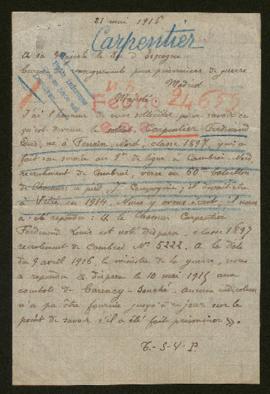 21 mai 1916
Carpentier
A sa Majesté le Roi d'Espagne
pour prisonniers de guerre
Madrid
24655
J'ai l'honneur de vous solliciter pour savoir ce
qu'est devenu le soldat Carpentier Ferdinand
Louis, né à Nord, classe 1897 qui a
fait son service au 1er de ligne à Cambrai Nord
recrutement de Cambrai, versé au 66e bataillon
de Chasseurs à pied, Compagnie, et
en 1914. Nous y avons écrit, il nous
a été répondu : le Chasseur Carpentier
Ferdinand Louis est noté disparu classe 1897
recrutement de Cambrai No 5222. A la date
du 9 avril 1916, le ministre de la guerre, nous
a répondu disparu le 10 mai 1915 aux
combats de Carency-Souchez aucun
n'a pu être fournie jusqu'à ce jour sur le
point de savoir s'il a été fait prisonnier ».
T. S. V. P.